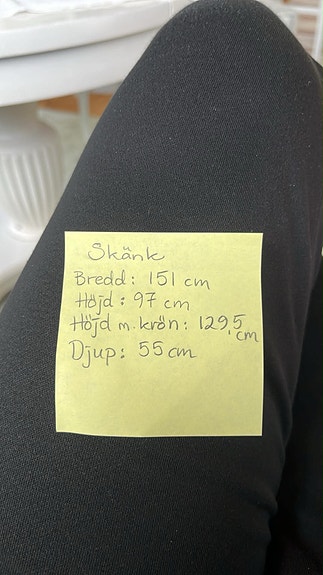 Skänk
Bredd: 151 cm
Höjd: 97 cm
Höjd m. krön: 129,5 cm
Djup: 55 cm